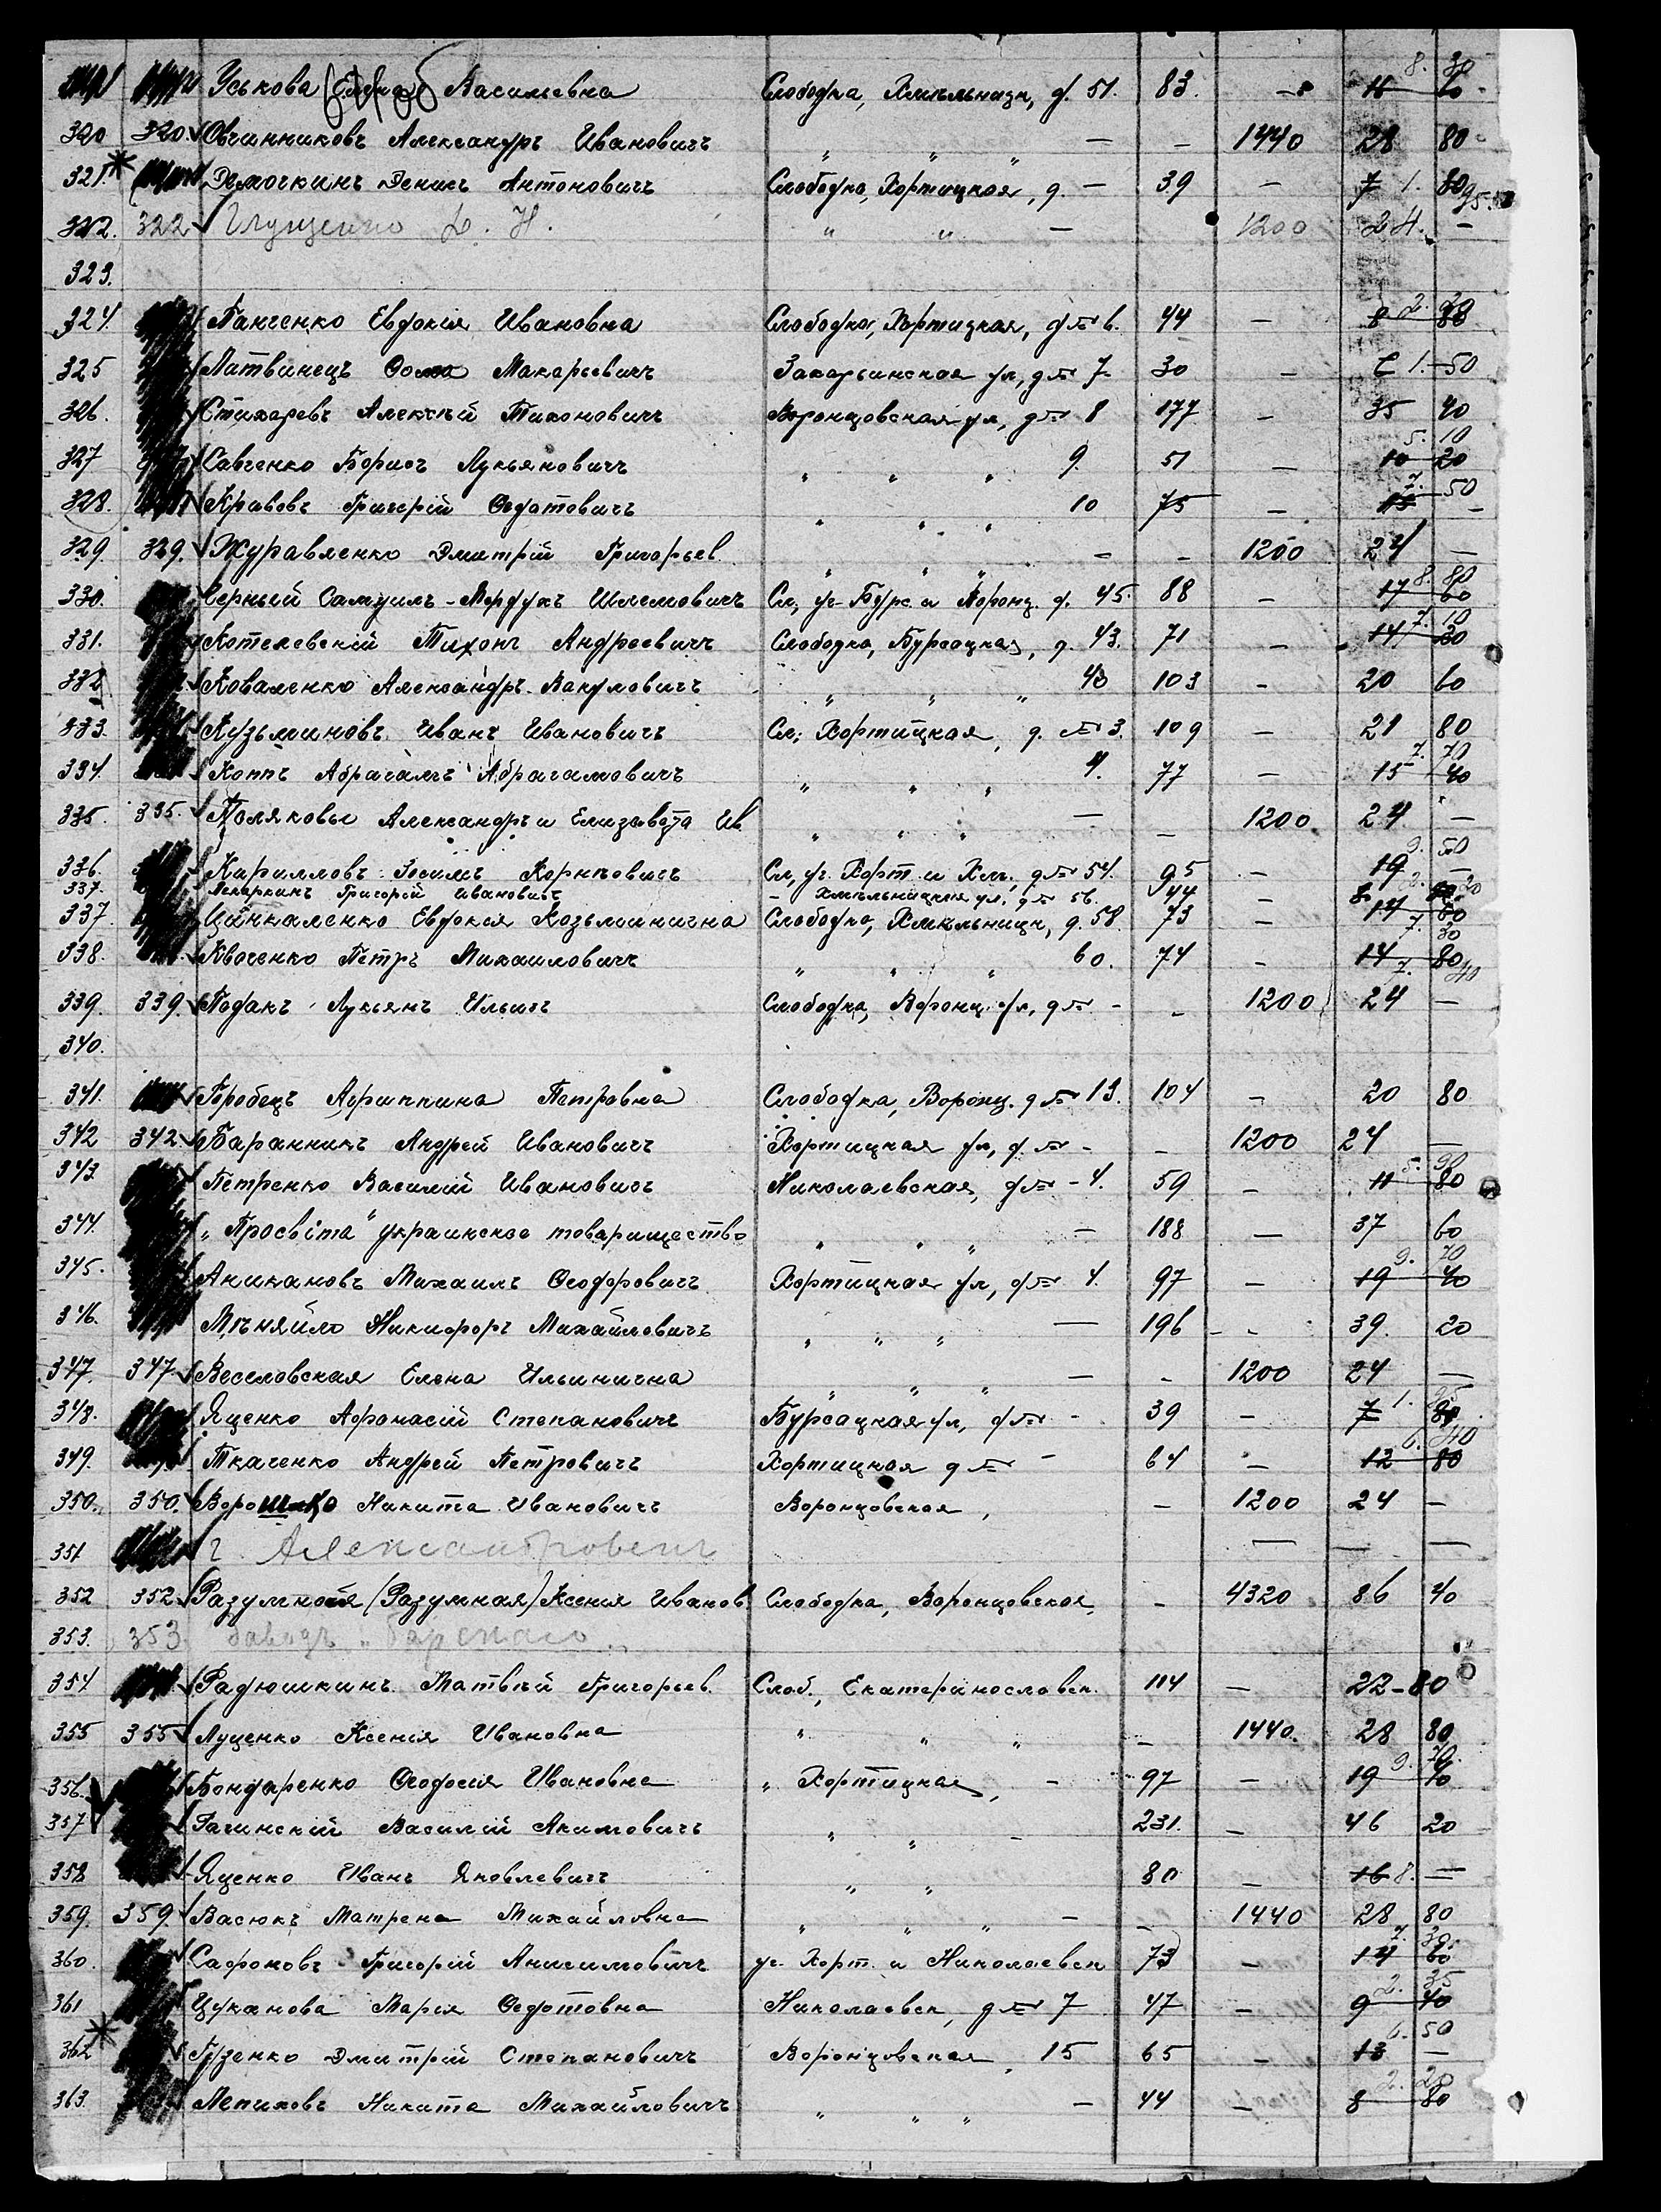 Уськова Елена Васильевна Слободка, Хмѣльницк, д. 51. 83. — 11 60 8. 30
320 320. Овчинниковъ Александръ Ивановичъ " " " — — 1440 28 80
321. Демочкинъ Денисъ Антоновичъ Слободка, Хортицкая, д. — 39 — 7 80 1. 95
322. 322 Глущенко Д. Н. " " — 1200 24. —
323.
324. Панченко Евдокія Ивановна Слободка, Хортицкая, д № 6. 44 — 8 80 2. 20
325 Латвинецъ Фома Макарьевичъ Захарьинская ул, д № 7 30 — 6 1. — 50
326. Стихаревъ Алексѣй Тихоновичъ Воронцовская ул, д № 8 177 — 35 40
327 Савченко Борисъ Лукьяновичъ " " " 9. 51 — 10 20 5. 10
328. Кравовъ Григорій Федотовичъ " " " 10 75 — 15 — 7. 50
329. 329. Журавленко Дмитрій Григорьев. " " " — — 1200 24 —
330. Черный Самуилъ-Мордухъ Шлемовичъ Сл, уг. Бурс. и Воронц. д. 45. 88 — 17 60 8. 80
331. Котелевскій Тихонъ Андреевичъ Слободка, Бурсацкая, д. 43. 71 — 14 20 7. 10
332. Коваленко Александръ Вакуловичъ " " " 43 103 — 20 60
333. Кузьминовъ Иванъ Ивановичъ Сл; Хортицкая, д. № 3. 109 — 21 80
334. Коппъ Абрагамъ Абрагамовичъ " " " 4. 77 — 15 40 7. 70
335. 335. Поляковы Александръ и Елизавета Ив " " " — — 1200. 24 —
336. Карилловъ Зосимъ Корнѣевичъ Сл, уг. Хорт. и Хм., д № 54. 95 — 19 — 9. 50
337. Григорій Ивановичъ — Хмѣльницкая ул, д № 56. 44 — 8. 80 2. 20
337. Цинкаленко Евдокія Козьминична Слободка, Хмѣльницк, д. 58. 73 — 14 60 7. 30
338. Квоченко Петръ Михаиловичъ " " " 60. 74 — 14 80 7. 40
339. 339. Подакъ Лукьянъ Ильичъ Слободка, Воронц. ул, д № — — 1200 24 —
340.
341. Горобецъ Агрипина Петровна Слободка, Воронц. д № 13. 104 — 20 80
342 342 Баранникъ Андрей Ивановичъ Хортицкая ул, д. № — — 1200 24 —
343. Петренко Василій Ивановичъ Николаевская, д № - 4. 59 — 11 80 5. 90
344. „Просвіта" украинское товарищество " " " — 188 — 37 60
345. Аникановъ Михаилъ Феодоровичъ Хортицкая ул, д № 4. 97 — 19 40 9. 70
346. Мѣняйло Никифоръ Михайловичъ " " " — 196 — 39. 20
347. 347. Веселовская Елена Ильинична " " " — — 1200 24 —
348. Яценко Афанасій Степановичъ Бурсацкая ул, д № — 39 — 7 80 1. 95
349. Ткаченко Андрей Петровичъ Хортицкая д № — 64 — 12 80 6. 40
350. 350. Ворошко Никита Ивановичъ Воронцовская, — 1200 24 —
351 г. Александровскъ — — —
352 352 Разумной (Разумная) Ксенія Иванов Слободка, Воронцовская, — 4320 86 40
353. 353. Заводъ
354 Радюшкинъ Матвѣй Григорьев. Слоб., Екатеринославск. 114 — 22 - 80
355 355 Луценко Ксенія Ивановна " " " — 1440. 28 80
356. Бондаренко Феодосія Ивановна " Хортицкая, — 97 — 19 40 9. 70
357 Рачинскій Василій Акимовичъ " " — 231. — 46 20
358 Яценко Иванъ Яковлевичъ " " 80 — 16 8. —
359. 359 Васюкъ Матрена Михайловна " " " — — 1440 28 80
360. Сафоновъ Григорій Анисимовичъ уг. Хорт. и Николаевск 73 — 14 60 7. 30
361 Цуканова Марія Федотовна Николаевск, д № 7 47 — 9 40 2. 35
362 Гузенко Дмитрій Степановичъ Воронцовская, 15 65 — 13 — 6. 50
363. Лепиховъ Никита Михайловичъ " " " — 44 — 8 80 2. 20